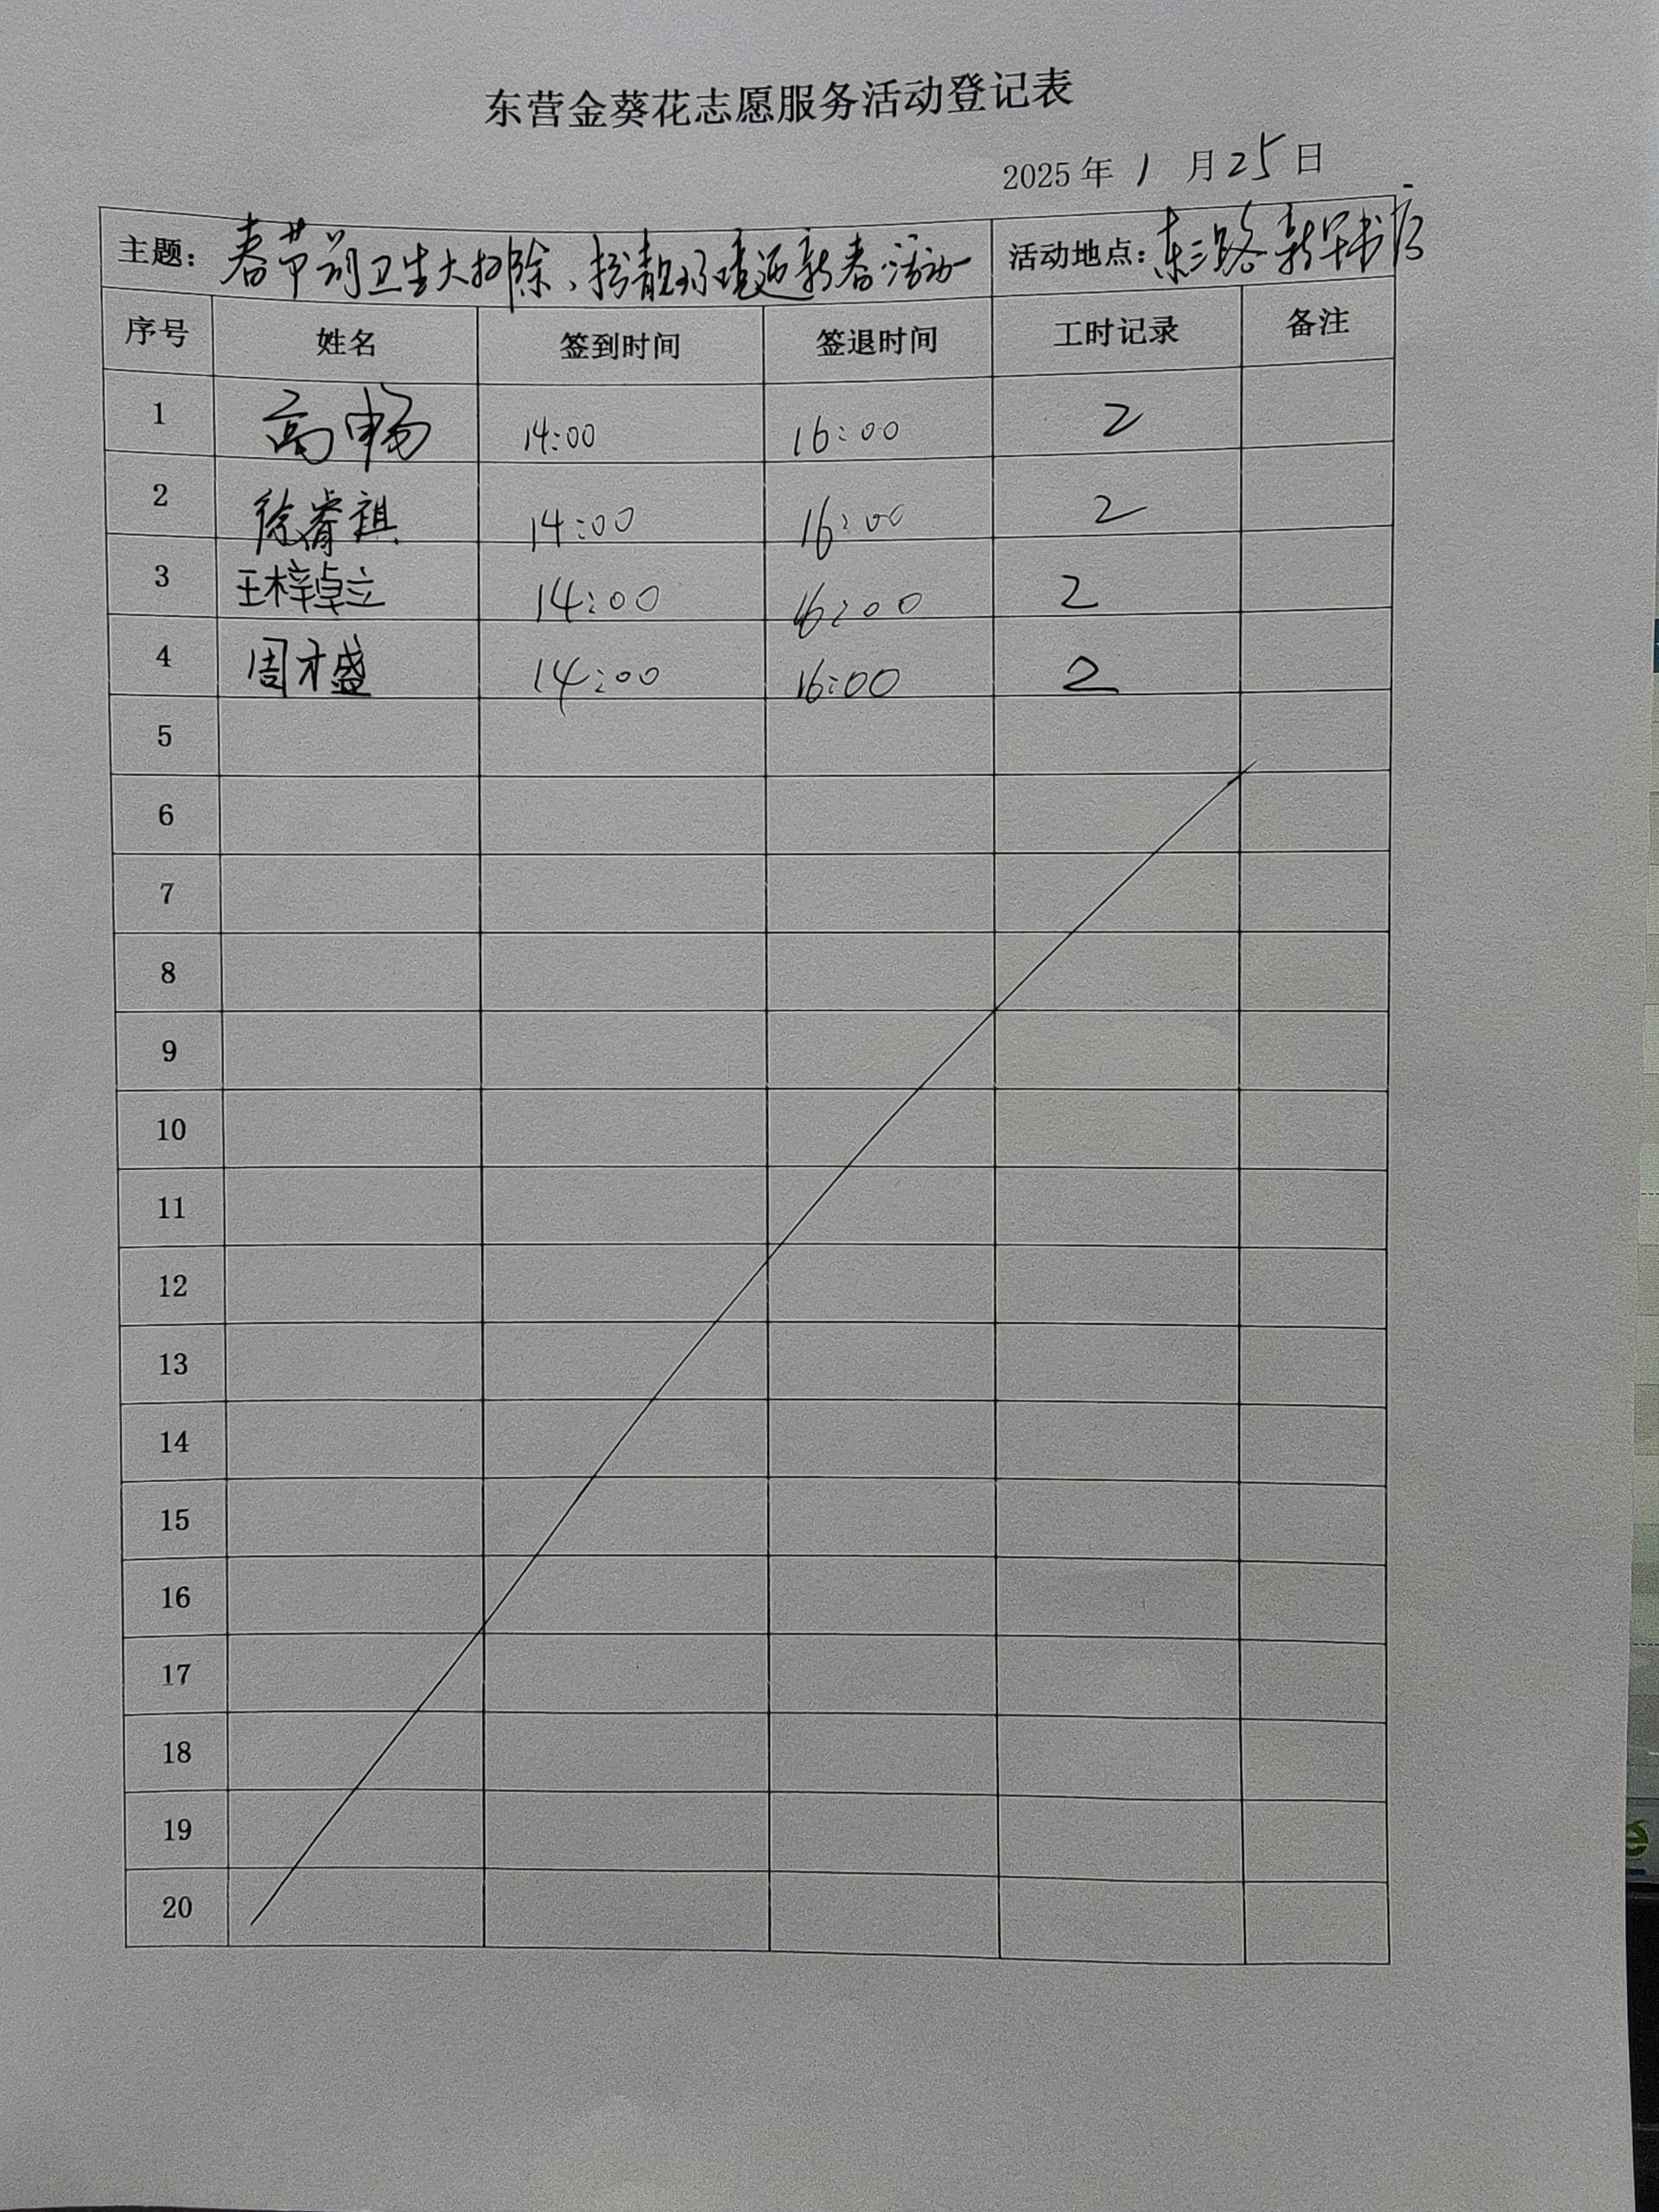 东营金葵花志愿服务活动登记表
2025 年 1 月 25 日
主题: 春节前卫生大扫除、扮靓环境迎新春活动 活动地点: 东三路新华书店
序号 姓名 签到时间 签退时间 工时记录 备注
1 高畅 14:00 16:00 2
2 徐睿祺 14:00 16:00 2
3 王梓卓立 14:00 16:00 2
4 周才盛 14:00 16:00 2
5
6
7
8
9
10
11
12
13
14
15
16
17
18
19
20